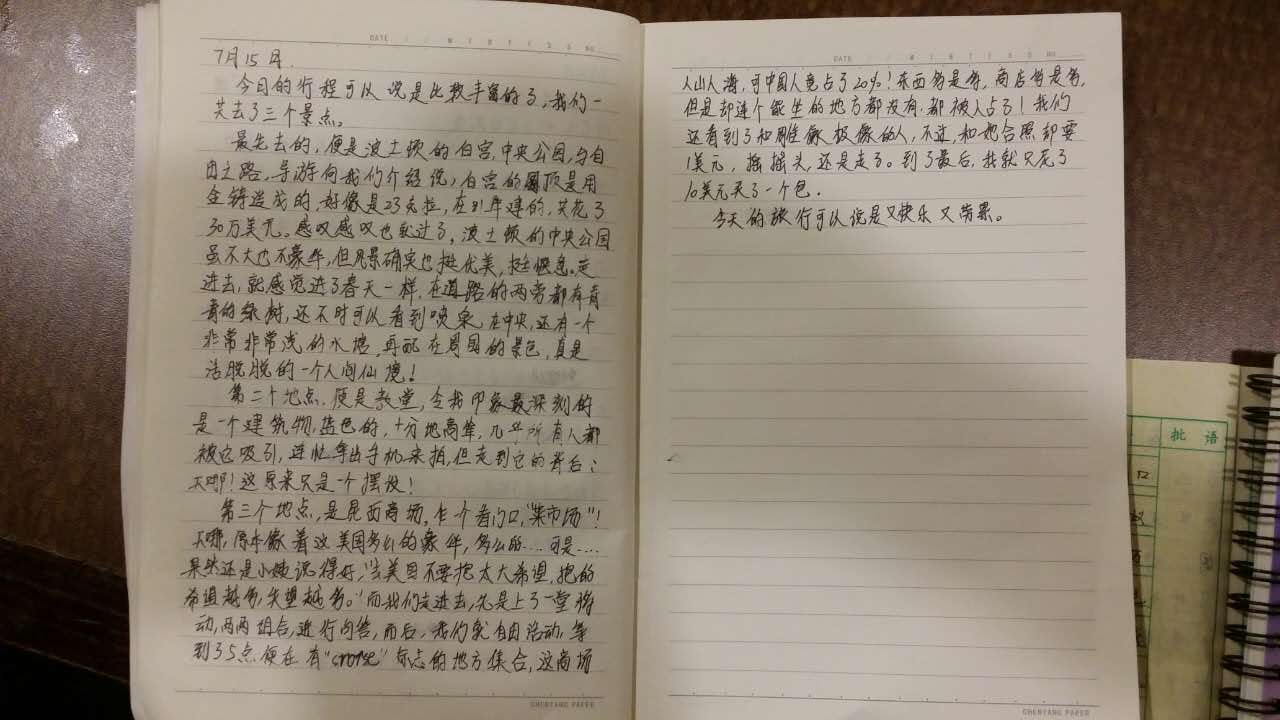 DATE / / M T W T F S S NO.
7月15日.
今日的行程可以说是比较丰富的了,我们一
共去了三个景点。
最先去的,便是波士顿的白宫,中央公园,与自
由之路。导游向我们介绍说,白宫的圆顶是用
金铸造成的,好像是23克拉,在81年建的,共花了
30万美元。感叹感叹也就过了,波士顿的中央公园
虽不大也不豪华,但风景确实也挺优美,挺惬意。走
进去,就感觉进了春天一样,在道路的两旁都有青
青的绿树,还不时可以看到喷泉,在中央,还有一个
非常非常浅的水塘,再配在周围的景色,真是
活脱脱的一个人间仙境!
第二个地点,便是教堂,令我印象最深刻的
是一个建筑物,蓝色的,十分地高耸,几乎所有人都
被它吸引,连忙拿出手机来拍,但走到它的背后:
天哪!这原来只是一个摆设!
第三个地点,是昆西商场,乍一看门口,"菜市场"!
天哪,原本像着这美国多么的豪华,多么的……可是……
果然还是小姨说得好,"去美国不要抱太大希望,抱的
希望越多,失望越多。"而我们走进去,先是上了一堂
动,两两组合,进行问答,而后,我们就自由活动,等
到了5点,便在有" "标志的地方集合,这商场
CHENYANG PAPER
DATE / / M T W T F S S NO.
人山人海,可中国人竟占了20%!东西多是多,商店多是多,
但是却连个能坐的地方都没有,都被人占了!我们
还看到了和雕像极像的人,不过,和他合照却要
1美元,摇摇头,还是走了。到了最后,我就只花了
10美元买了一个包.
今天的旅行可以说是又快乐又劳累。
CHENYANG PAPER
批 语